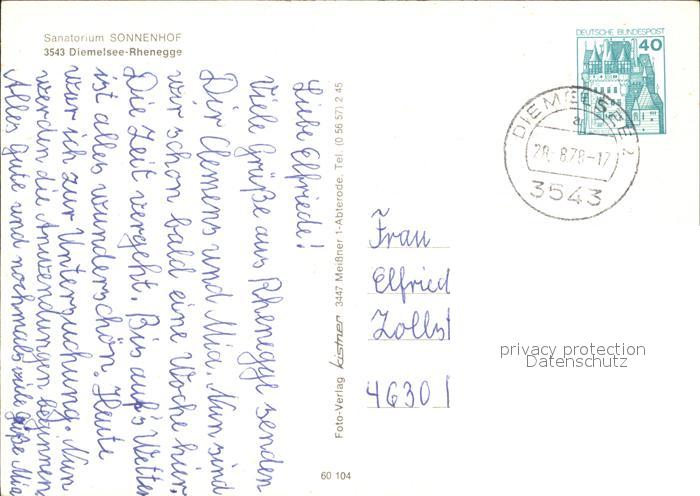 Sanatorium SONNENHOF
3543 Diemelsee-Rhenegge
Liebe Elfriede!
Viele Grüße aus Rhenegge senden
Dir Clemens und Mia. Nun sind
wir schon bald eine Woche hier.
Die Zeit vergeht. Bis auf's Wetter
ist alles wunderschön. Heute
war ich zur Untersuchung. Nun
werden die Anwendungen beginnen.
Alles gute und nochmals viele Grüße Mia
Foto-Verlag kistner 3447 Meißner 1-Abterode. Tel. (0 56 57) 2 45
60 104
DEUTSCHE BUNDESPOST
40
DIEMELSEE 2
a
28.-8.78-17
3543
Frau
Elfried
Zolls
4630 1
privacy protection
Datenschutz